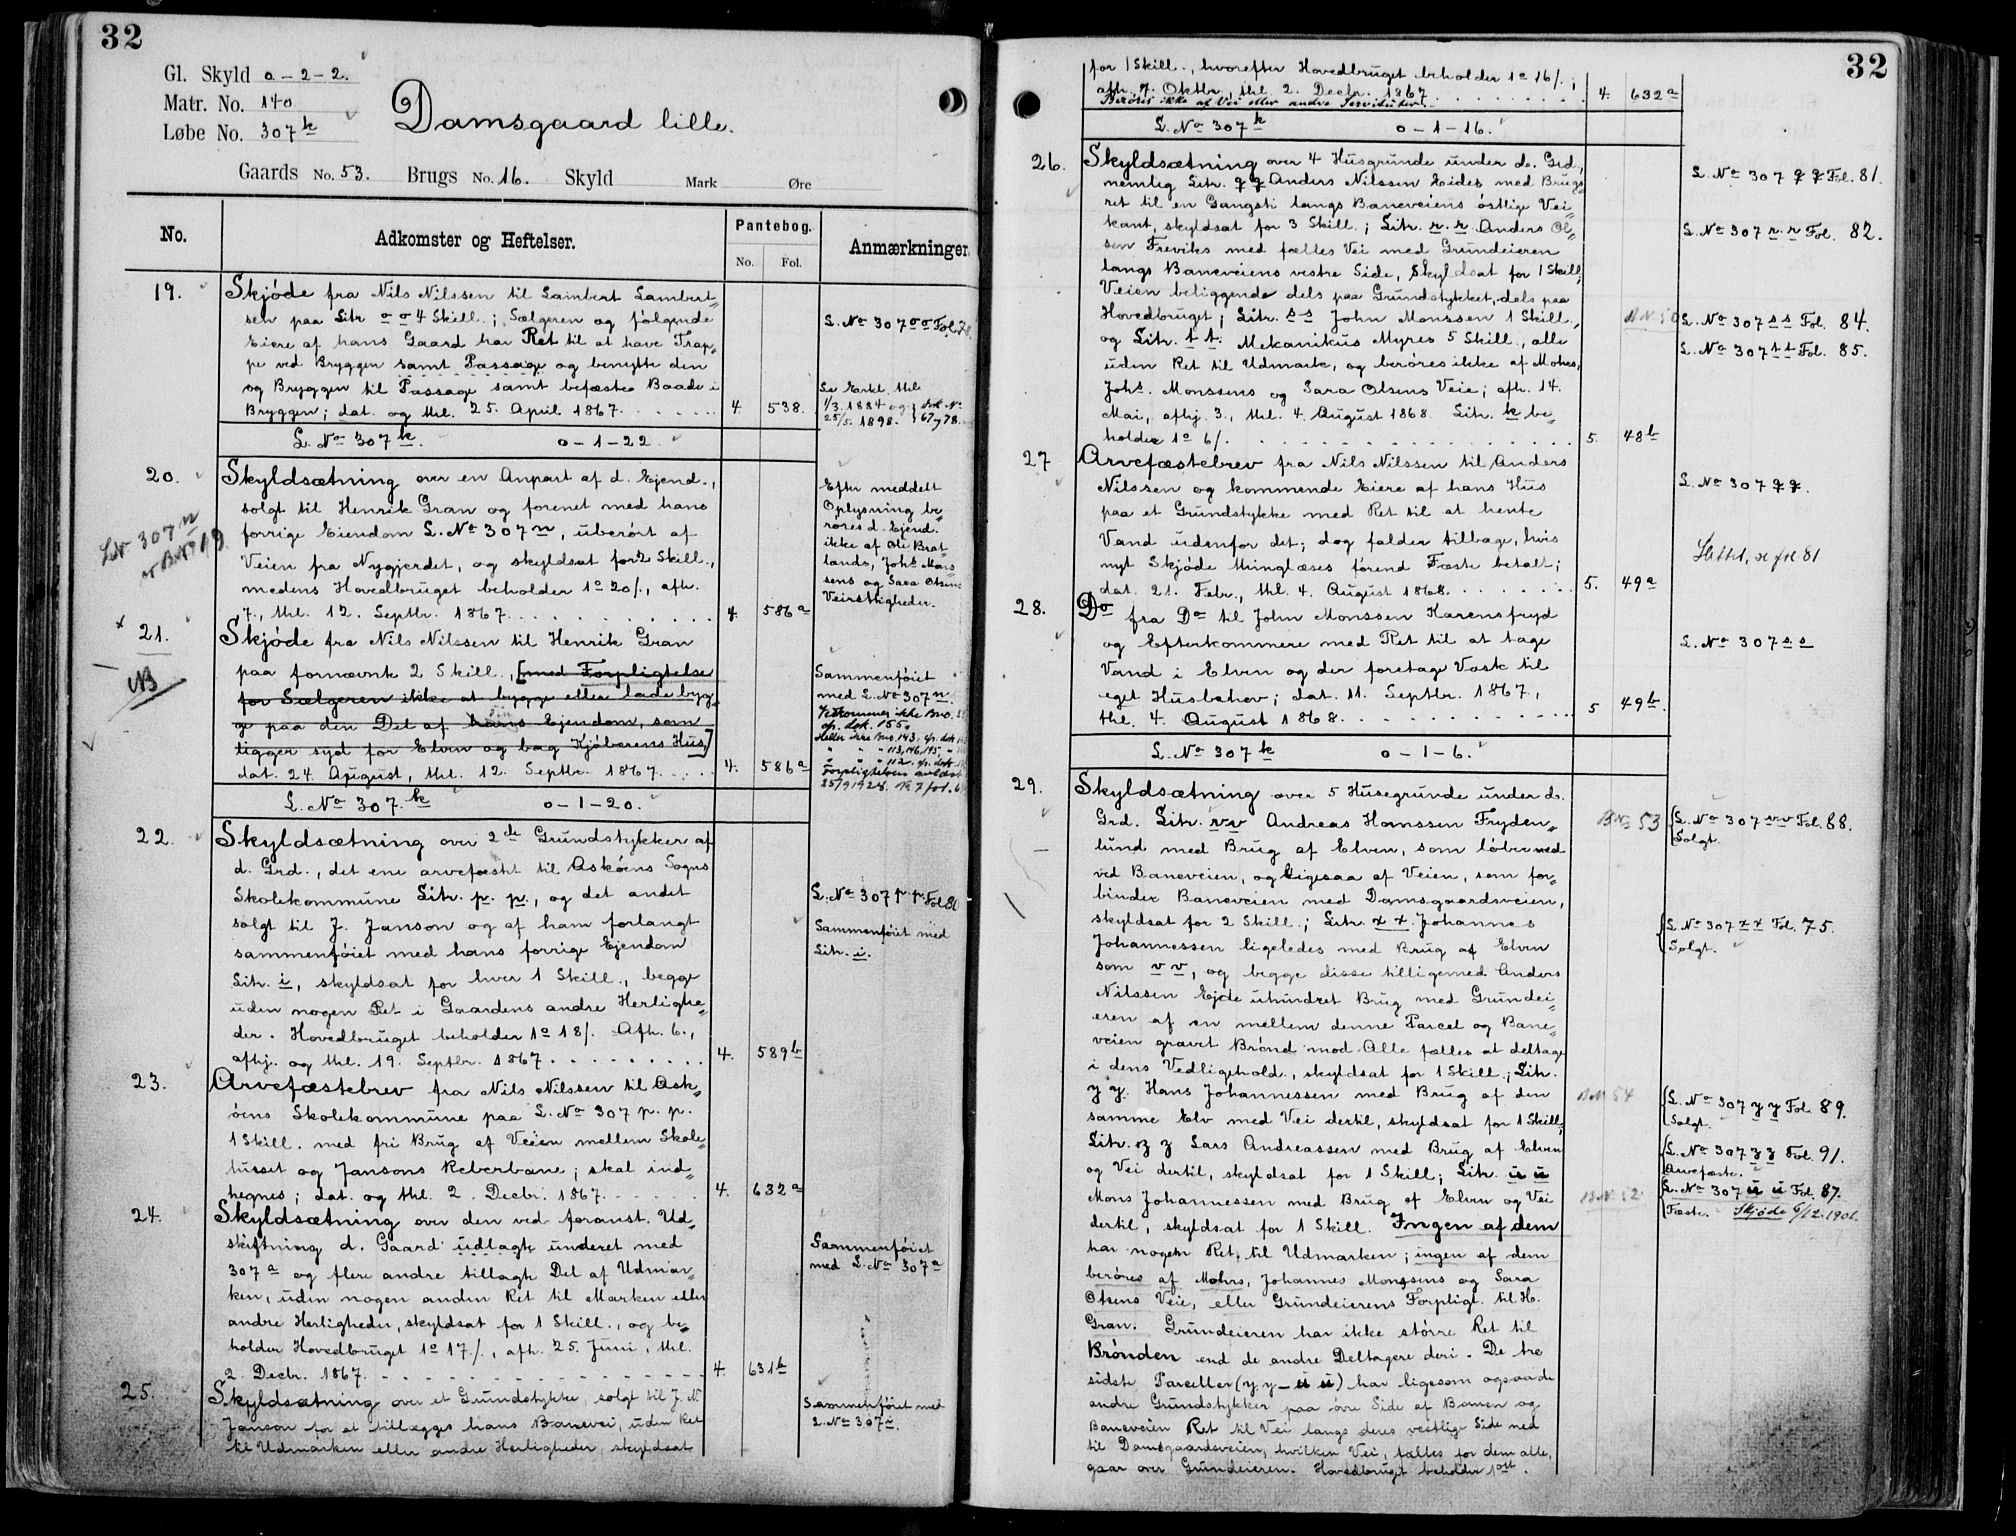 32
Gl. Skyld 0-2-2.
Matr. No. 140
Løbe No. 307 k
Damsgaard lille.
Gaards No. 53. Brugs No. 16. Skyld Mark Øre
No. Adkomster og Heftelser. Pantebog. Anmærkninger.
No. Fol.
19. Skjøde fra Nils Nilssen til Lambert Lambert-
sen paa Litr o o 4 Skill.; Sælgeren og følgende
Eiere af hans Gaard har Ret til at have Trap-
pe ved Bryggen samt Passage og benytte den
og Bryggen til Passage samt befæste Baade i
Bryggen; dat. og thl. 25. April 1867. 4. 538.
L. No 307 oo Fol.
Se Erkl. thl.
1/3. 1884 og
25/5. 1898.
67, 78.
L. No 307 k. 0-1-22
20. Skyldsætning over en Anpart af d. Ejend.,
solgt til Henrik Gran og forenet med hans
forrige Eiendom L. No 307 n, uberørt af
Veien fra Nygjerdet, og skyldsat for 2 Skill.,
medens Hovedbruget beholder 1o 20/., afh.
7., thl. 12. Septbr. 1867. 4. 586 a
LN 307 n
Efter meddelt
Oplysning be-
røres d. Ejend.
ikke af Oli Brat-
lands, Johs Mons
sens og Sara Olsens
Veirettigheder.
21. Skjøde fra Nils Nilssen til Henrik Gran
NB
paa fornævnte 2 Skill., [med Forpligtelse
for Sælgeren ikke at bygge eller lade byg-
ge paa den Del af hans Ejendom, som
ligger syd for Elven og bag Kjøberens Hus,]
dat. 24. August, thl. 12. Septbr. 1867. 4. 586 a
Sammenføiet
med L. No 307 n.
Vedkommer ikke Bno.
cfr. dok. 155.
Heller ikke Bno 143, cfr. dok
" " " 113, 146, 195, "
" " " 112. cfr. dok
Forpligtelsen avlæst
25/9 1928.
L. No 307. k 0-1-20.
22. Skyldsætning over 2de Grundstykker af
d. Grd., det ene arvefæstet til Askøens Sogns
Skolekommune Litr. p. p., og det andet
solgt til J. Janson og af ham forlangt
sammenføiet med hans forrige Ejendom
Litr. i, skyldsat for hver 1 Skill., begge
uden nogen Ret i Gaardens andre Herlighe-
der. Hovedbruget beholder 1o 18/. Afh. 6.,
afhj. og thl. 19. Septbr. 1867. 4. 589 b
L. No 307 p. p. Fol 80
Sammenføiet med
Litr. i.
23. Arvefæstebrev fra Nils Nilssen til Ask-
øens Skolekommune paa L. No 307 p. p.
1 Skill. med fri Brug af Veien mellem Skole-
husset og Jansons Reberbane; skal ind-
hegnes; dat. og thl. 2. Decbr. 1867. 4. 632 a
24. Skyldsætning over den ved foranst. Ud-
skiftning d. Gaard udlagte underet med
307 a og flere andre tillagte Del af Udmar-
ken, uden nogen anden Ret til Marken eller
andre Herligheder, skyldsat for 1 Skill., og be-
holder Hovedbruget 1o 17/., afh. 25. Juni, thl.
2. Decbr. 1867. 4. 631 b
Sammenføiet
med L. No 307 a
25. Skyldsætning over et Grundstykke, solgt til J. N.
Janson for at tillægges hans Banevei, uden Ret
til Udmarken eller andre Herligheder, skyldsat
Sammenføiet med
L. No 307 i.
32
for 1 Skill., hvorefter Hovedbruget beholder 1o 16/.;
afh. 7. Oktbr., thl. 2. Decbr. 1867. 4. 632 a
Berøres ikke af Vei eller andre Servituter.
L. No 307 k 0-1-16.
26. Skyldsætning over 4 Husgrunde under do. Grd.,
nemlig Litr. q q Anders Nilssen Eides med Brugs
ret til en Gangsti langs Baneveiens østlige Vei-
kant, skyldsat for 3 Skill.; Litr. r. r. Anders Ol-
sen Freviks med fælles Vei med Grundeieren
langs Baneveiens vestre Side, Skyldsat for 1 Skill,
Veien beliggende dels paa Grundstykket, dels paa
Hovedbruget; Litr. s s John Monssen 1 Skill.,
og Litr. t t. Mekanikus Myres 5 Skill., alle
uden Ret til Udmark, og berøres ikke af Mohrs,
Johs. Monssens og Sara Olsens Veie; afh. 14.
Mai, afhj. 3., thl. 4. August 1868. Litr. k be-
holder 1o 6/. 5. 48 b
L. No 307 q q Fol. 81.
L. No 307 r. r Fol. 82.
L. No 307 s s Fol. 84.
L. No 307 t t Fol. 85.
27 Arvefæstebrev fra Nils Nilssen til Anders
Nilssen og kommende Eiere af hans Hus
paa et Grundstykke med Ret til at hente
Vand udenfor det; dog falder tilbage, hvis
nyt Skjøde thinglæses førend Fæste betalt;
dat. 21. Febr., thl. 4. August 1868. 5. 49 a
L. No 307 q q.
Slettet, se fol 81
28. Do fra Do til John Monssen Harensfryd
og Efterkommere med Ret til at tage
Vand i Elven og der foretage Vask til
eget Husbehov; dat. 11. Septbr. 1867,
thl. 4. August 1868. 5 49 b.
L. No 307 s s
L. No 307 k 0-1-6.
29. Skyldsætning over 5 Husegrunde under do.
Grd. Litr. v v Andreas Hanssen Fryden-
lund med Brug af Elven, som løber ned
ved Baneveien, og ligesaa af Veien, som for-
binder Baneveien med Damsgaardsveien,
skyldsat for 2 Skill.; Litr. x x. Johannes
Johannessen ligeledes med Brug af Elven
som v v, og begge disse tilligemed Anders
Nilssen Ejde uhindret Brug med Grundei-
eren af en mellem denne Parcel og Bane-
veien gravet Brønd mod Alle fælles at deltage
i dens Vedligehold., skyldsat for 1 Skill.; Litr.
y y. Hans Johannessen med Brug af den
samme Elv med Vei dertil, skyldsat for 1 Skill,
Litr. z z Lars Andreassen med Brug af Elven
og Vei dertil, skyldsat for 1 Skill; Litr. u u
Mons Johannessen med Brug af Elven og Vei
dertil, skyldsat for 1 Skill. Ingen af dem
har nogen Ret til Udmarken; ingen af dem
berøres af Mohrs, Johannes Monssens og Sara
Olsens Veie, eller Grundeierens Forpligt. til H.
Gran. Grundeieren har ikke større Ret til
Brønden end de andre Deltagere deri. De tre
sidste Parceller (y y - u u) har ligesom ogsaa de
andre Grundstykker paa øvre Side af Banen og
Baneveien Ret til Vei langs deres vestlige Side ned
til Damsgaardsveien, hvilken Vei, fælles for dem alle,
gaar over Grundeieren. Hovedbruget beholder 1 ort.
BN 53
L. No 307 v v Fol. 88.
Solgt.
L. No 307 x x Fol. 75.
Solgt.
BN 54
L. No 307 y y Fol. 89.
Solgt.
L. No 307 z z Fol. 91.
Arvefæste.
L. No 307 u u Fol. 87.
Fæste. Skjøde 6/12.1901.